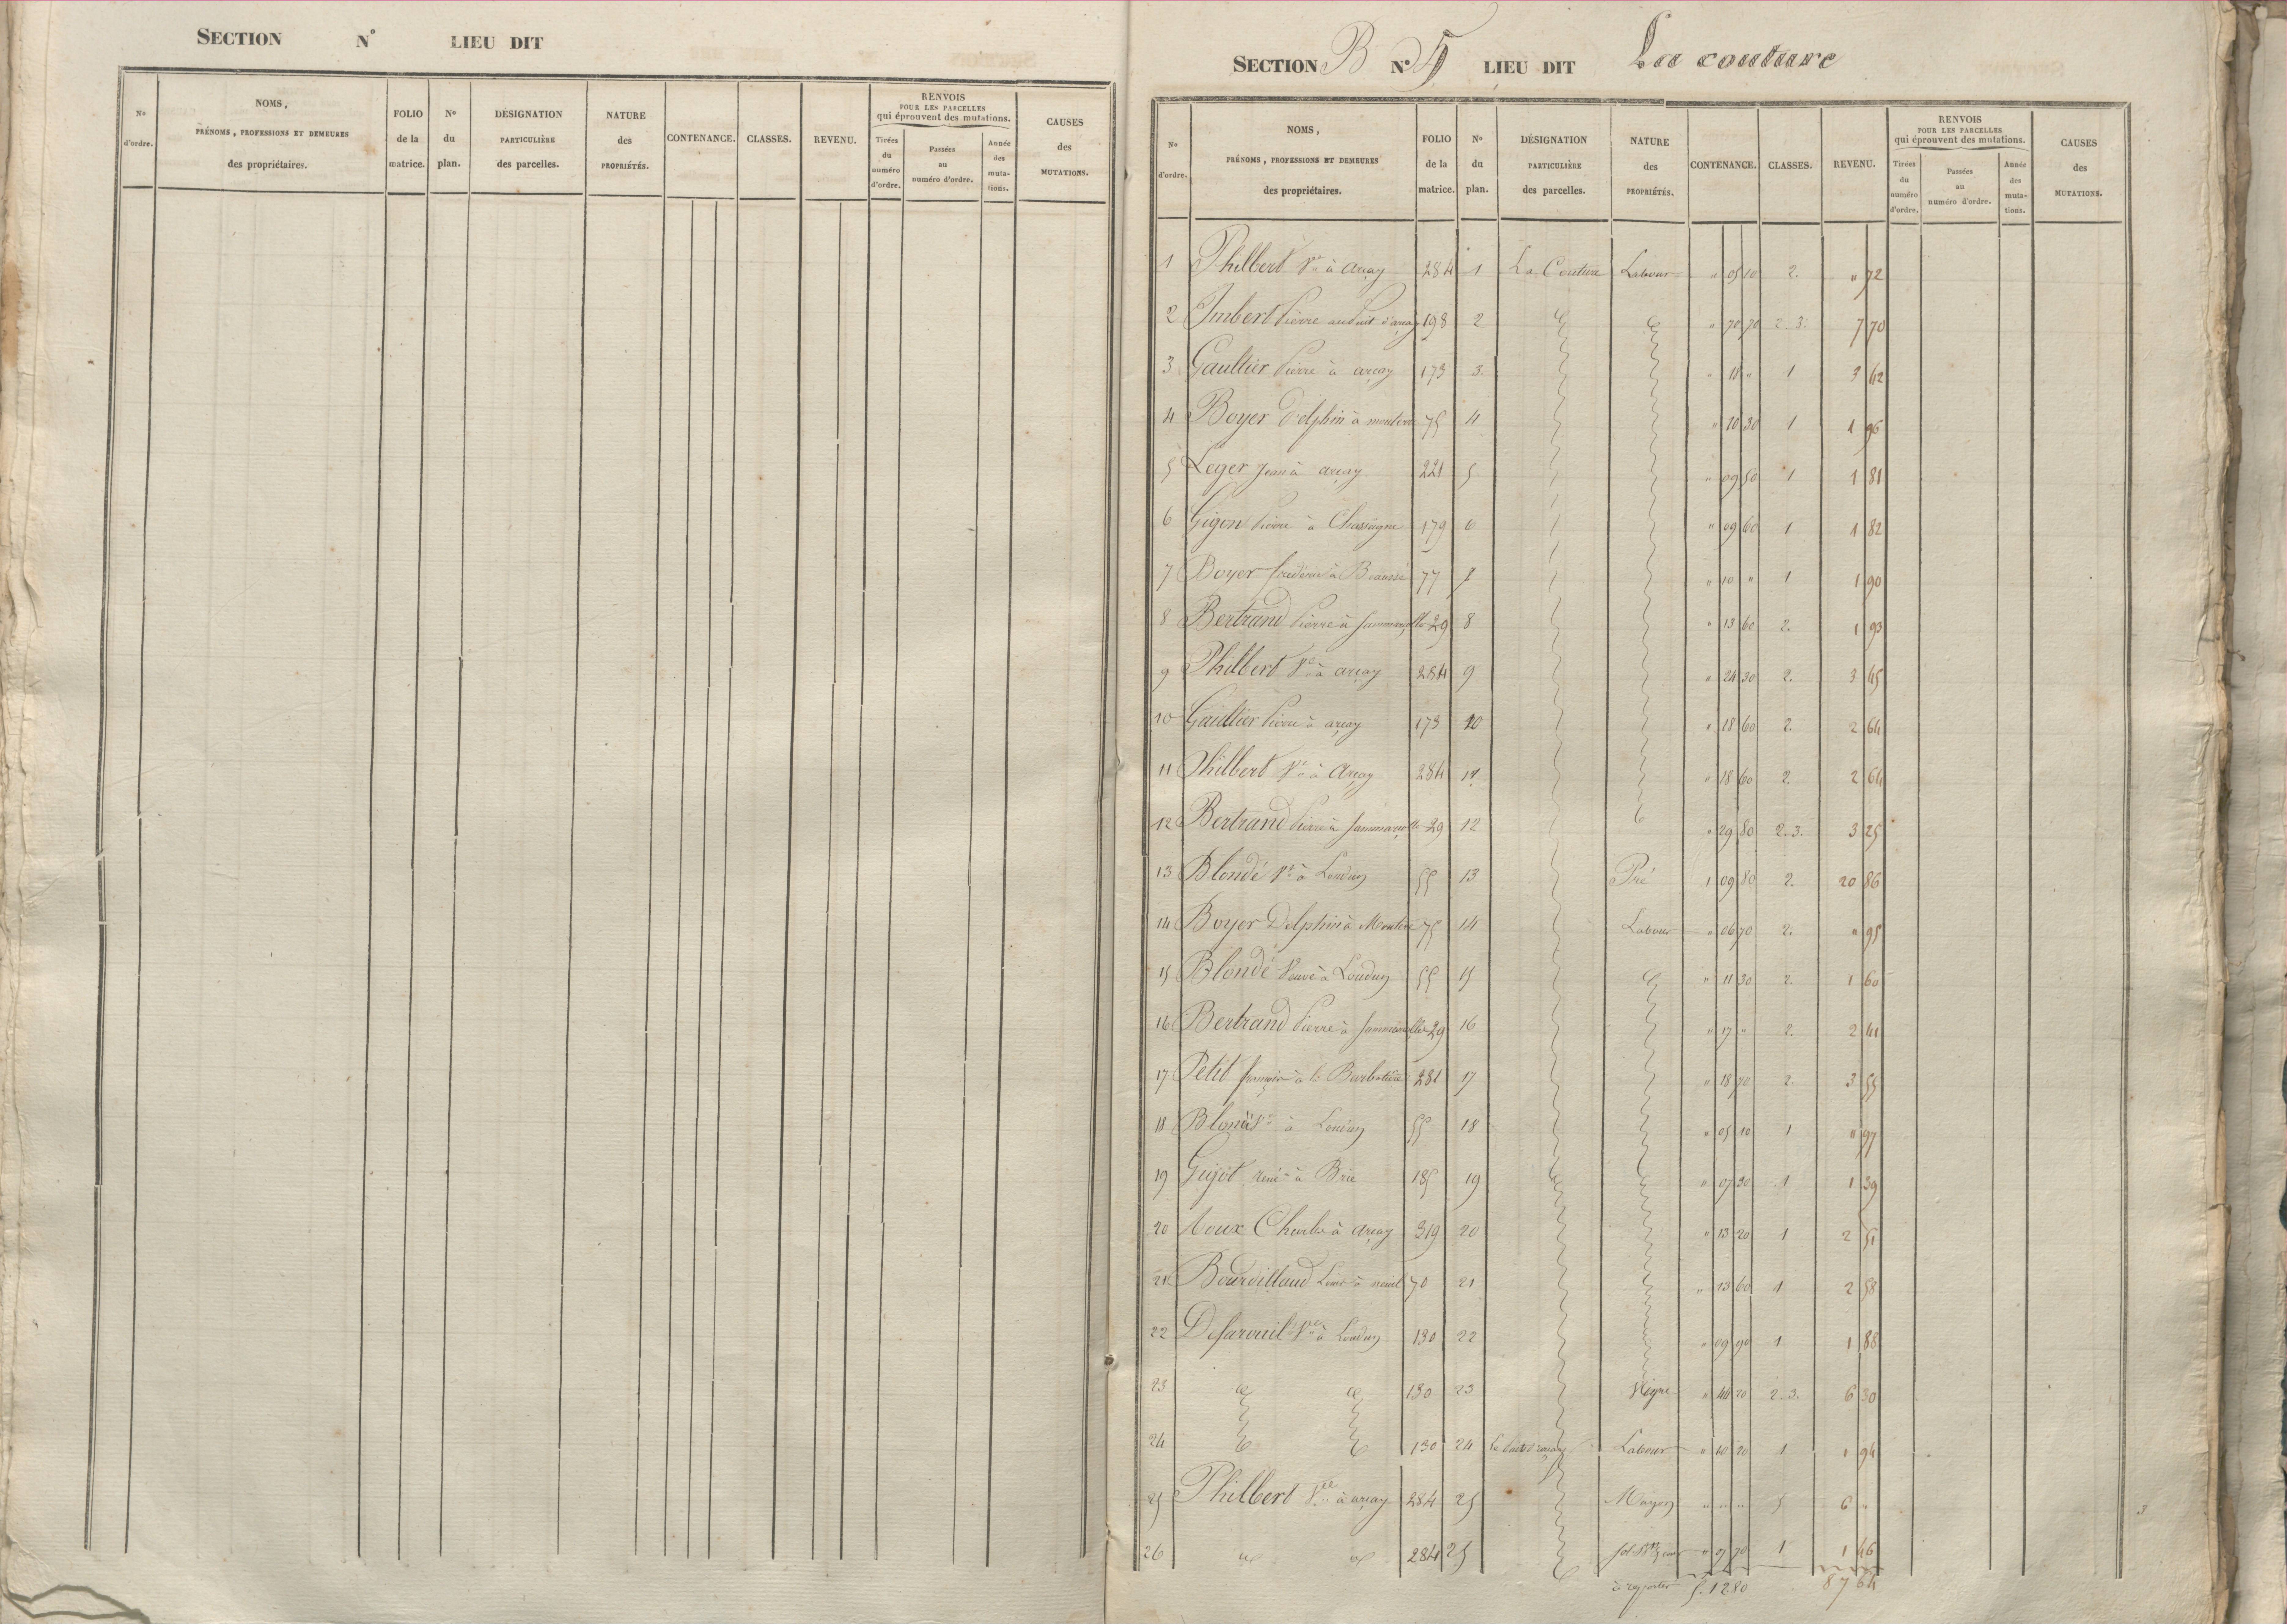 SECTION N° LIEU DIT
N° d'ordre. NOMS, PRÉNOMS, PROFESSIONS ET DEMEURES des propriétaires. FOLIO de la matrice. N° du plan. DÉSIGNATION PARTICULIÈRE des parcelles. NATURE des PROPRIÉTÉS. CONTENANCE. CLASSES. REVENU. RENVOIS POUR LES PARCELLES qui éprouvent des mutations. Tirées du numéro d'ordre. Passées au numéro d'ordre. Année des mutations. CAUSES des MUTATIONS.
SECTION B N° 5 LIEU DIT La couture
N° d'ordre. NOMS, PRÉNOMS, PROFESSIONS ET DEMEURES des propriétaires. FOLIO de la matrice. N° du plan. DÉSIGNATION PARTICULIÈRE des parcelles. NATURE des PROPRIÉTÉS. CONTENANCE. CLASSES. REVENU. RENVOIS POUR LES PARCELLES qui éprouvent des mutations. Tirées du numéro d'ordre. Passées au numéro d'ordre. Année des mutations. CAUSES des MUTATIONS.
1 Philbert Ve à arçay 284 1 La Couture Labour " 05 10 2. " 72
2 Imbert Pierre d'arçay 198 2 " 70 70 2. 3. 7 70
3 Gaultier Pierre à arçay 173 3. " " 1 3 42
4 Boyer Delphin à mouterre 75 4 " 10 30 1 1 96
5 Leger Jean à arçay 221 5 " 09 50 1 1 81
6 Gigon Pierre à Chassigne 179 6 " 09 60 1 1 82
7 Boyer frederic à 77 7 " 10 " 1 1 90
8 Bertrand Pierre à Sammarçolles 29 8 " 13 60 2. 1 93
9 Philbert Ve à arçay 284 9 " 24 30 2. 3 45
10 Gaultier Pierre à arçay 173 10 " 18 60 2. 2 64
11 Philbert Ve à Arçay 284 11 " 18 60 2. 2 64
12 Bertrand Pierre à Sammarçolles 29 12 " 29 80 2. 3. 3 25
13 Blondé Ve à Loudun 55 13 Pré 1 09 80 2. 20 86
14 Boyer Delphin à Mouterre 75 14 Labour " 06 70 2. " 95
15 Blondé Veuve à Loudun 55 15 " 11 30 2. 1 60
16 Bertrand Pierre à Sammarçolles 29 16 " 17 " 2. 2 41
17 Petit françois à la Barbotière 281 17 " 18 70 2. 3 55
18 Blondé Ve à Loudun 55 18 " 05 10 1 " 97
19 Gujot René à Brie 185 19 " 07 30 1 1 39
20 Roux Charles à arçay 319 20 " 13 20 1 2 51
21 Bourdillaud Louis à 70 21 " 13 60 1 2 58
22 Ve à Loudun 130 22 " 09 90 1 1 88
23 130 23 Vigne " 44 20 2. 3. 6 30
24 130 24 Labour " 10 20 1 1 94
25 Philbert Ve à arçay 284 25 Maison " " " 5 6 "
26 284 25 " 07 70 1 1 46
à reporter 5. 12 80 87 64
3